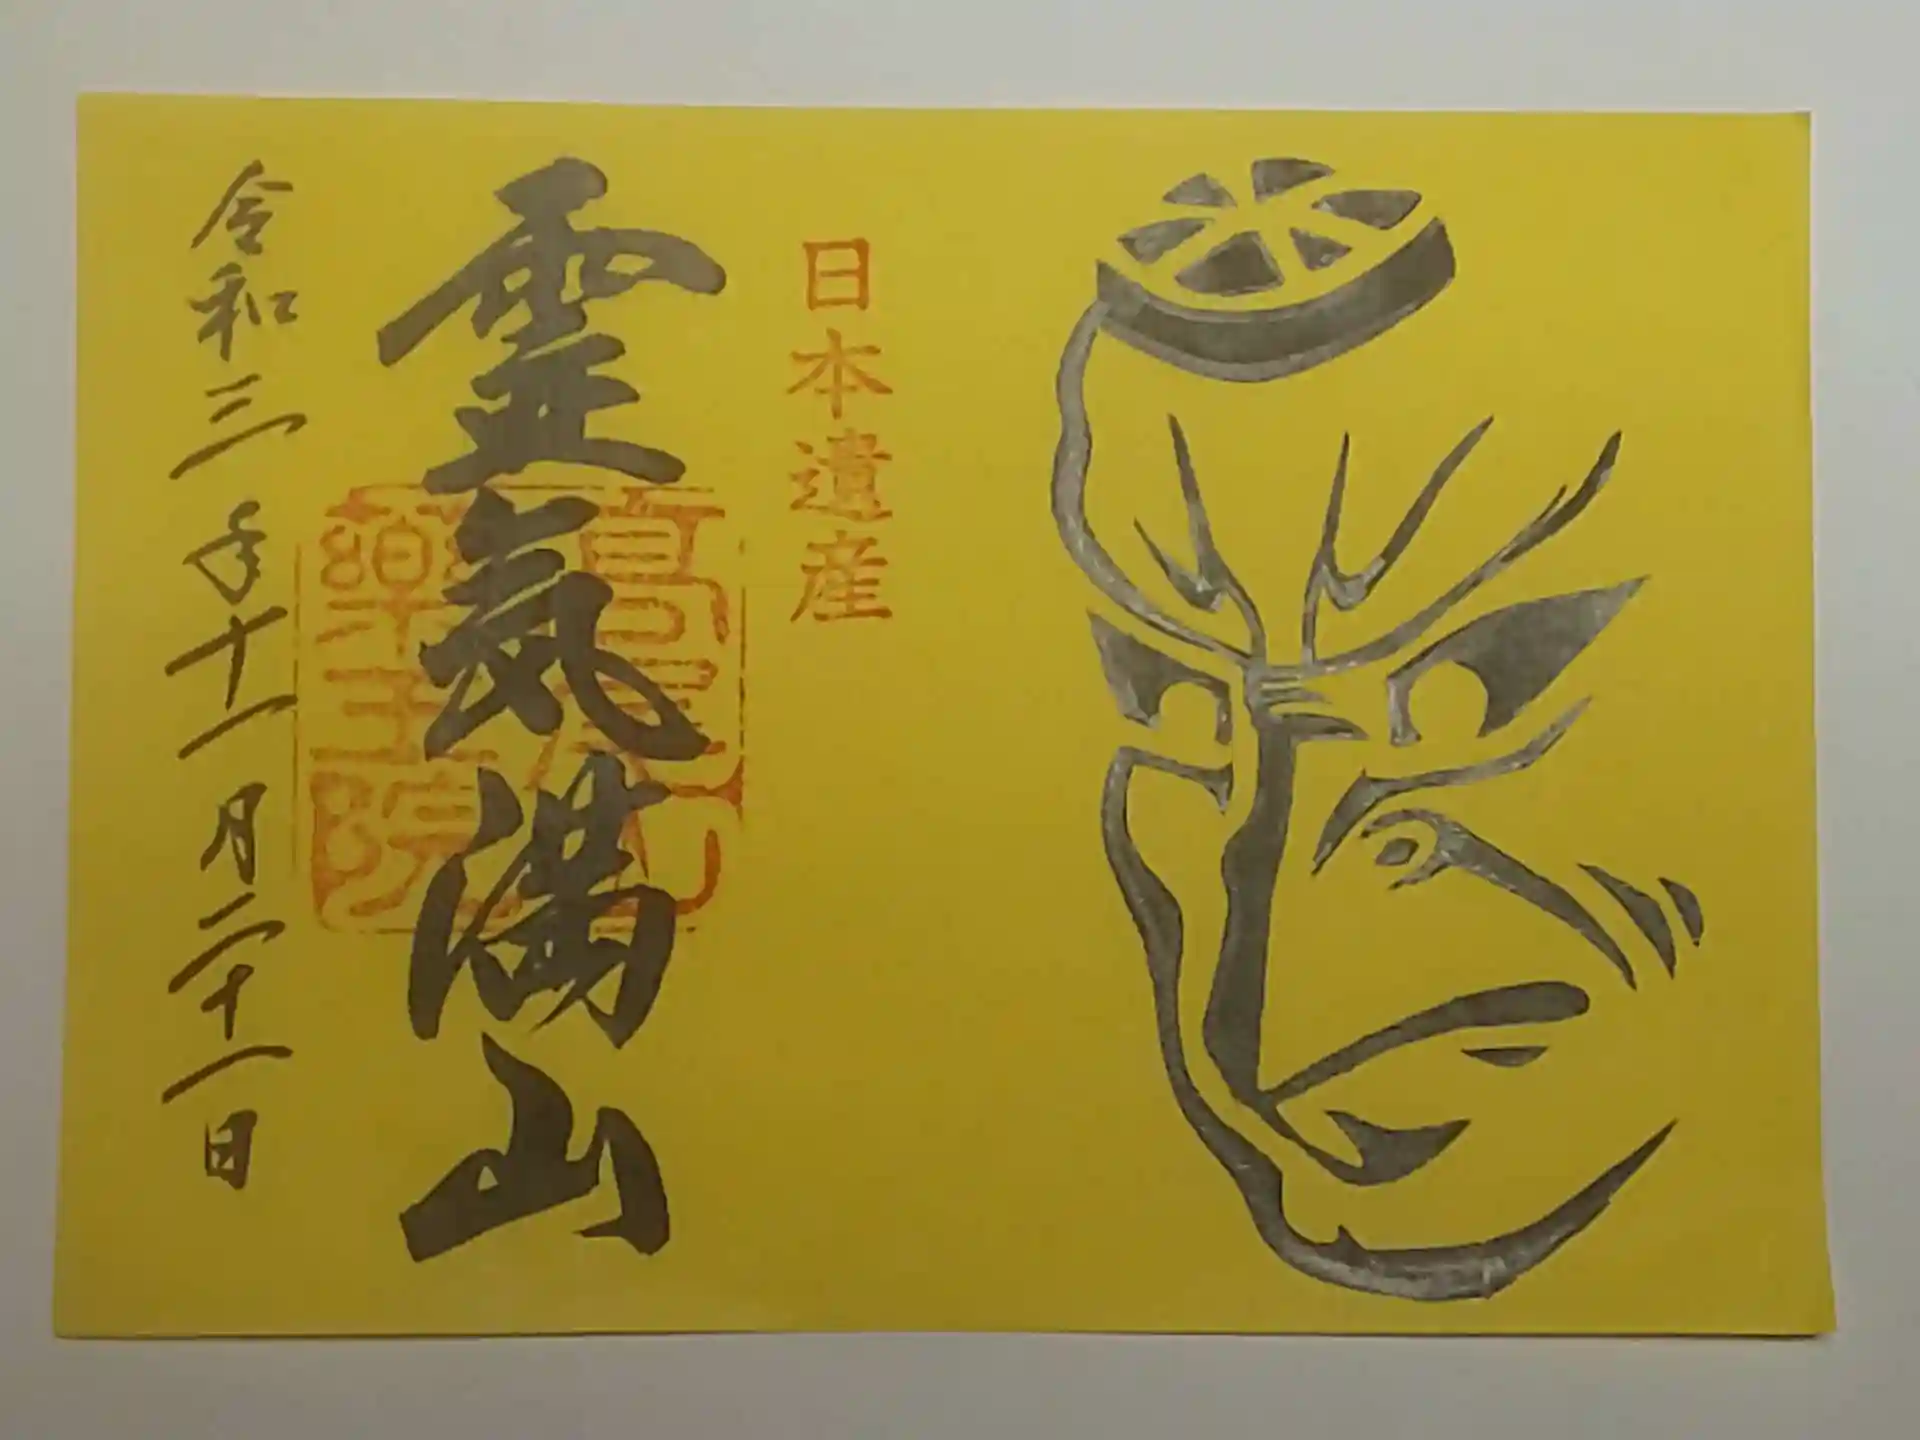 日本遺産
霊氣満山
高尾山
薬王院
令和三年十一月二十一日